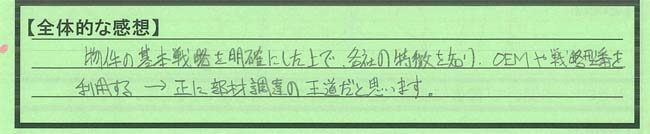 【全体的な感想】
物件の基本戦略を明確にした上で、各社の特徴を知り、OEMや戦略型番を
利用する → 正に部材調達の王道だと思います。